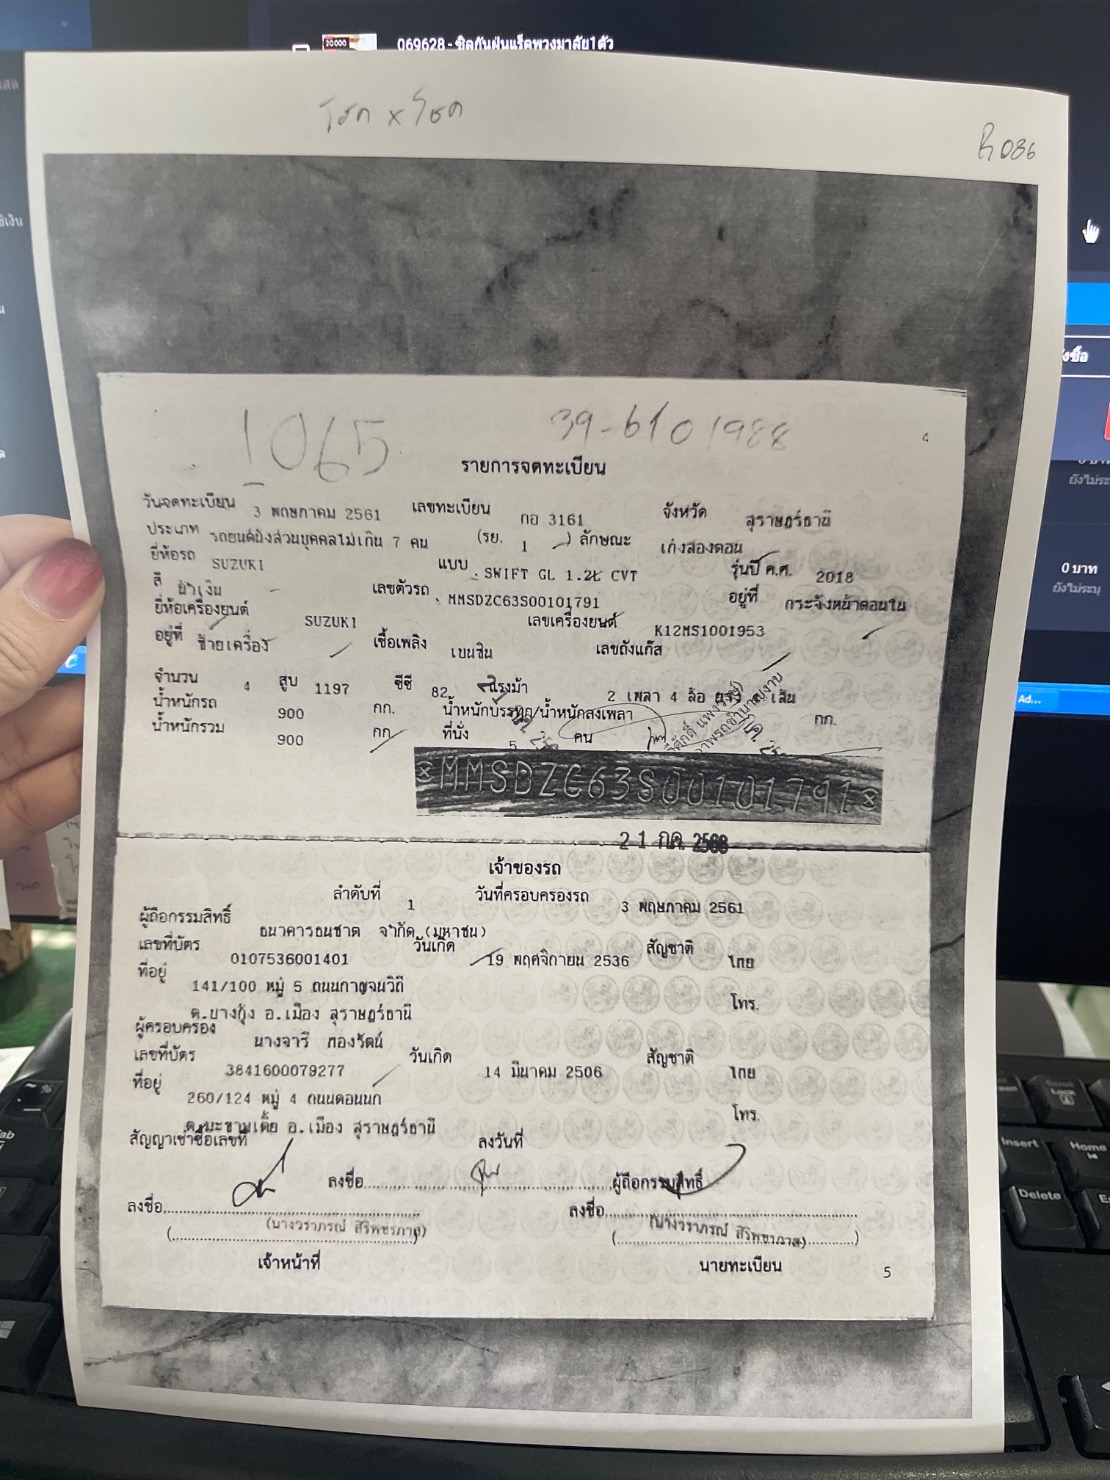 069628 - ซิลกันฝุ่นแร็คพวงมาลัย1ตัว
โชค x โชค
R086
1065
39-6101988
4
รายการจดทะเบียน
วันจดทะเบียน 3 พฤษภาคม 2561 เลขทะเบียน กอ 3161 จังหวัด สุราษฎร์ธานี
ประเภท รถยนต์นั่งส่วนบุคคลไม่เกิน 7 คน (รย. 1 ) ลักษณะ เก๋งสองตอน
ยี่ห้อรถ SUZUKI แบบ SWIFT GL 1.2L CVT รุ่นปี ค.ศ. 2018
สี น้ำเงิน เลขตัวรถ MMSDZC63S00101791 อยู่ที่ กระจังหน้าตอนใน
ยี่ห้อเครื่องยนต์ SUZUKI เลขเครื่องยนต์ K12MS1001953
อยู่ที่ ซ้ายเครื่อง เชื้อเพลิง เบนซิน เลขถังแก๊ส
จำนวน 4 สูบ 1197 ซีซี 82 แรงม้า 2 เพลา 4 ล้อ ยาง 4 เส้น
น้ำหนักรถ 900 กก. น้ำหนักบรรทุก/น้ำหนักลงเพลา กก.
น้ำหนักรวม 900 กก. ที่นั่ง 5 คน
MMSDZC63S00101791
21 กค. 2568
เจ้าของรถ
ลำดับที่ 1 วันที่ครอบครองรถ 3 พฤษภาคม 2561
ผู้ถือกรรมสิทธิ์ ธนาคารธนชาต จำกัด (มหาชน)
เลขที่บัตร 0107536001401 วันเกิด 19 พฤศจิกายน 2536 สัญชาติ ไทย
ที่อยู่ 141/100 หมู่ 5 ถนนกาญจนวิถี
ต.บางกุ้ง อ.เมือง สุราษฎร์ธานี โทร.
ผู้ครอบครอง นางจารี ทองรัตน์
เลขที่บัตร 3841600079277 วันเกิด 14 มีนาคม 2506 สัญชาติ ไทย
ที่อยู่ 260/124 หมู่ 4 ถนนดอนนก
ต.มะขามเตี้ย อ.เมือง สุราษฎร์ธานี โทร.
สัญญาเช่าซื้อเลขที่ ลงวันที่
ลงชื่อ ผู้ถือกรรมสิทธิ์
ลงชื่อ ลงชื่อ
(นางวราภรณ์ สิริพชรภาส) (นางวราภรณ์ สิริพชรภาส)
เจ้าหน้าที่ นายทะเบียน
5
0 บาท
Ad...
Insert
Home
Delete